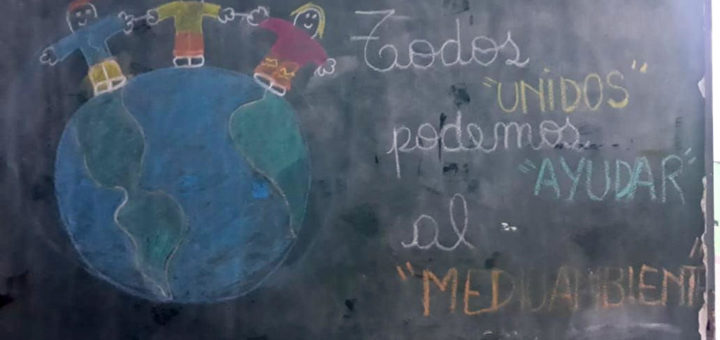 Todos
"UNIDOS"
podemos...
"AYUDAR"
al
"MEDIUAMBIENT